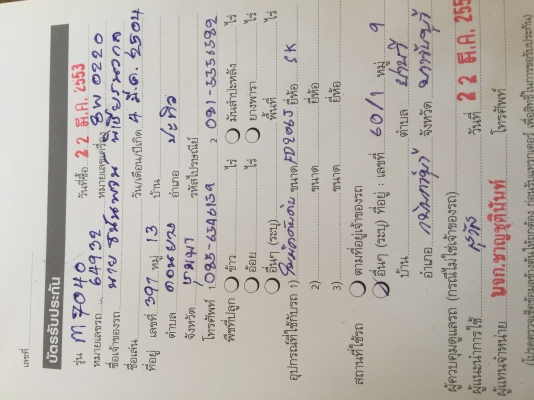 เลขที่
บัตรรับประกัน
รุ่น M 7040 วันที่ซื้อ 22 ธ.ค. 2553
หมายเลขรถ 64932 หมายเลขเครื่อง BW 0220
ชื่อเจ้าของรถ นาย
ชื่อเล่น วัน/เดือน/ปีเกิด 4 มี.ค. 2504
ที่อยู่ เลขที่ 397 หมู่ 13 บ้าน
ตำบล ดอนยาง อำเภอ ปะทิว
จังหวัด ชุมพร รหัสไปรษณีย์
โทรศัพท์ 1. 085-6546159 2. 081-5356582
พืชที่ปลูก ข้าว ไร่ มันสำปะหลัง ไร่
อ้อย ไร่ ยางพารา ไร่
อื่นๆ (ระบุ) พื้นที่ ไร่
อุปกรณ์ที่ใช้กับรถ 1) ใบมีดดันดิน ขนาด FD206J ยี่ห้อ SK
2) ขนาด ยี่ห้อ
3) ขนาด ยี่ห้อ
สถานที่ใช้รถ ตามที่อยู่เจ้าของรถ
อื่นๆ (ระบุ) ที่อยู่ : เลขที่ 60/1 หมู่ 9
บ้าน ตำบล
อำเภอ จังหวัด
ผู้ควบคุมดูแลรถ (กรณีไม่ใช่เจ้าของรถ)
ผู้แนะนำการใช้ วันที่ 22 ธ.ค. 255
ผู้แทนจำหน่าย บจก.ชาญชุตินันท์ โทรศัพท์
(โปรดตรวจเช็คข้อมูลข้างต้นให้ถูกต้อง ก่อนรับแทรกเตอร์ เพื่อสิทธิในการขอรับประกัน)